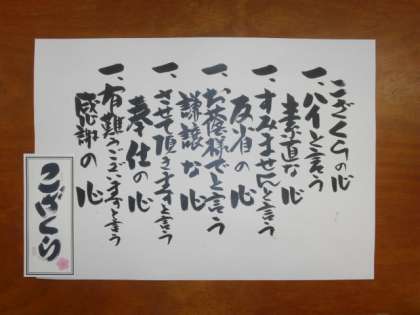 こざくらの心
一、ハイと言う
素直な心
一、すみませんと言う
反省の心
一、お蔭様でと言う
謙譲な心
一、させて頂きますと言う
奉仕の心
一、有難うございますと言う
感謝の心
こざくら